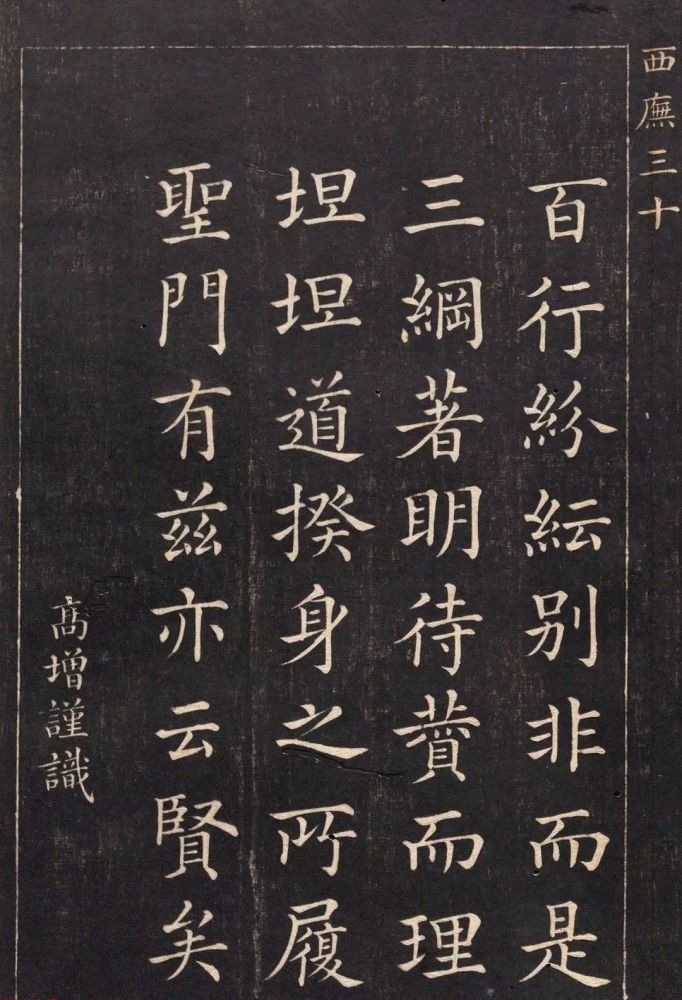 西廡三十
百行紛紜别非而是
三綱著明待蕡而理
坦坦道揆身之所履
聖門有兹亦云賢矣
高增謹識